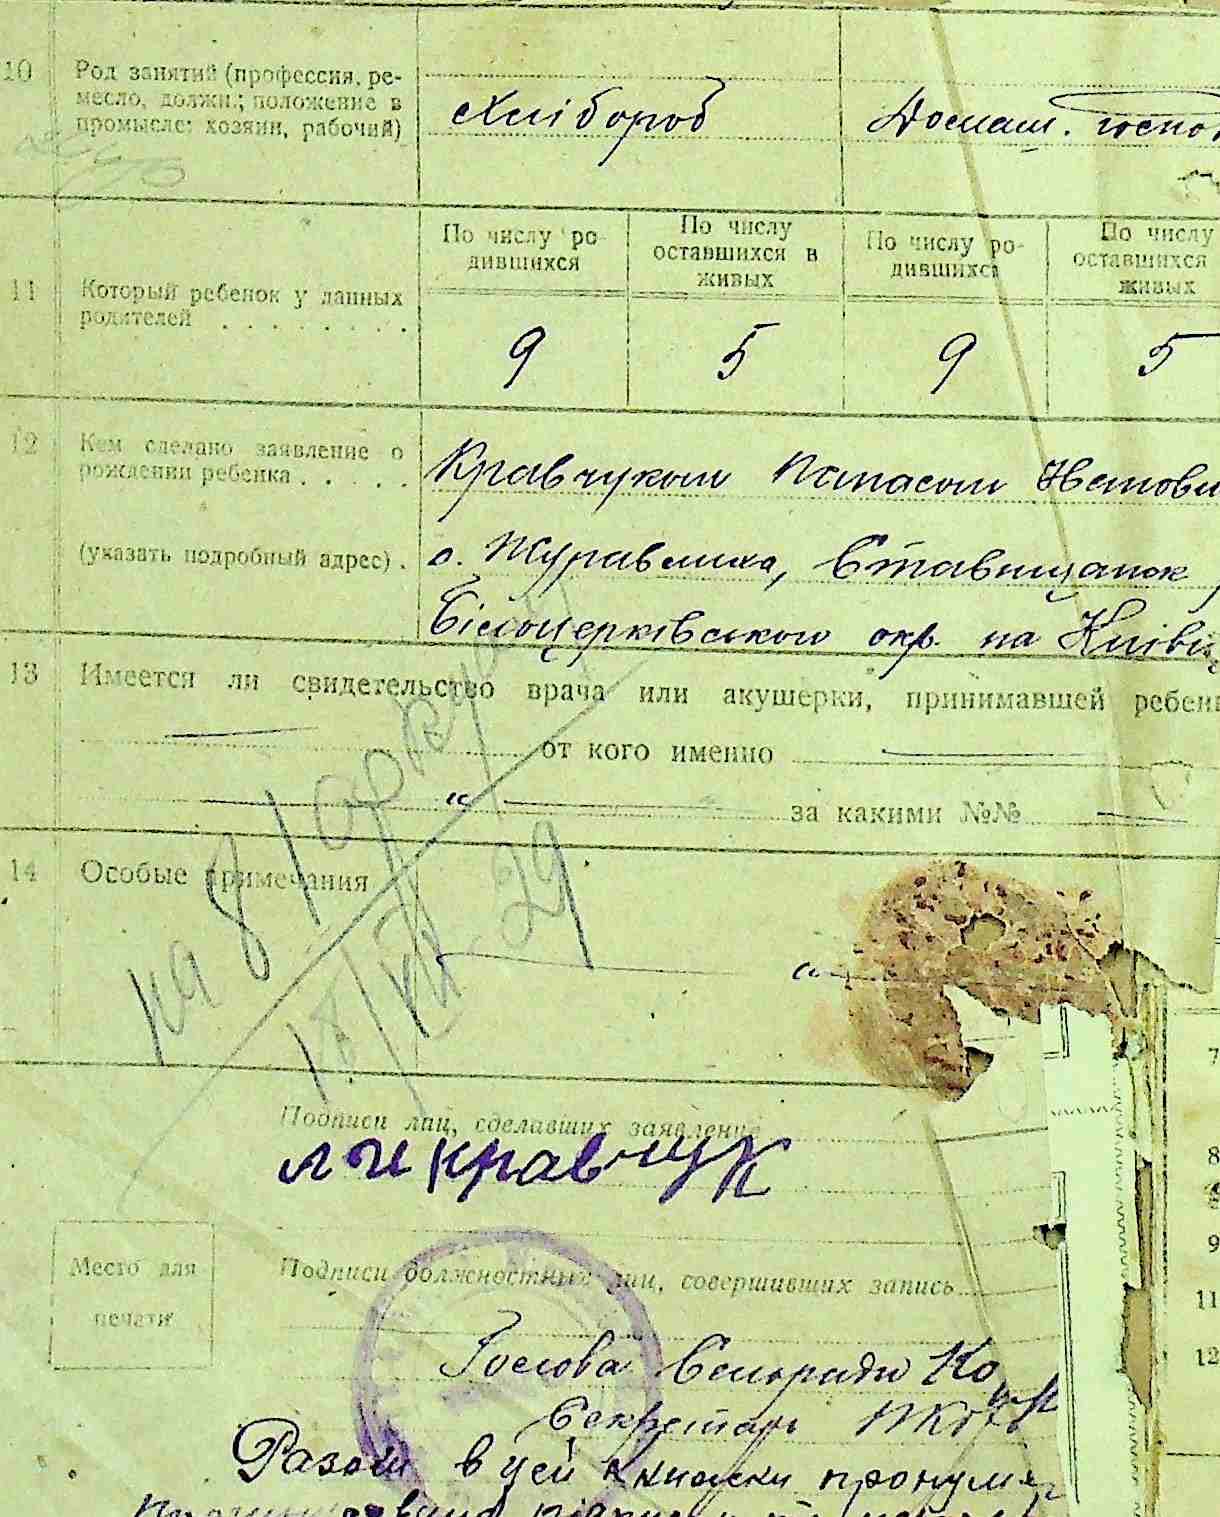 10 Род занятий (профессия, ре-
месло, должн.; положение в
промысле: хозяин, рабочий)
Хлібороб
Домаш. госпо
11 Который ребенок у данных
родителей . . . . . . . .
По числу ро-
дившихся
По числу
оставшихся в
живых
По числу ро-
дившихся
По числу
оставшихся
живых
9 5 9 5
12 Кем сделано заявление о
рождении ребенка . . . . .
Кравчуком Панасом Іванови
(указать подробный адрес) .
с. Журавлиха, Ставищанськ
Білоцерківської окр. на Київщ
13 Имеется ли свидетельство врача или акушерки, принимавшей ребен
от кого именно
" за какими №№
14 Особые примечания
на 81 аркуші
18/VII-29
Подписи лиц, сделавших заявление
П И Кравчук
Место для
печати
Подписи должностных лиц, совершивших запись
Голова Сільради Ко
Секретарь
Разом в цей книжки пронуме
7
8
9
11
12